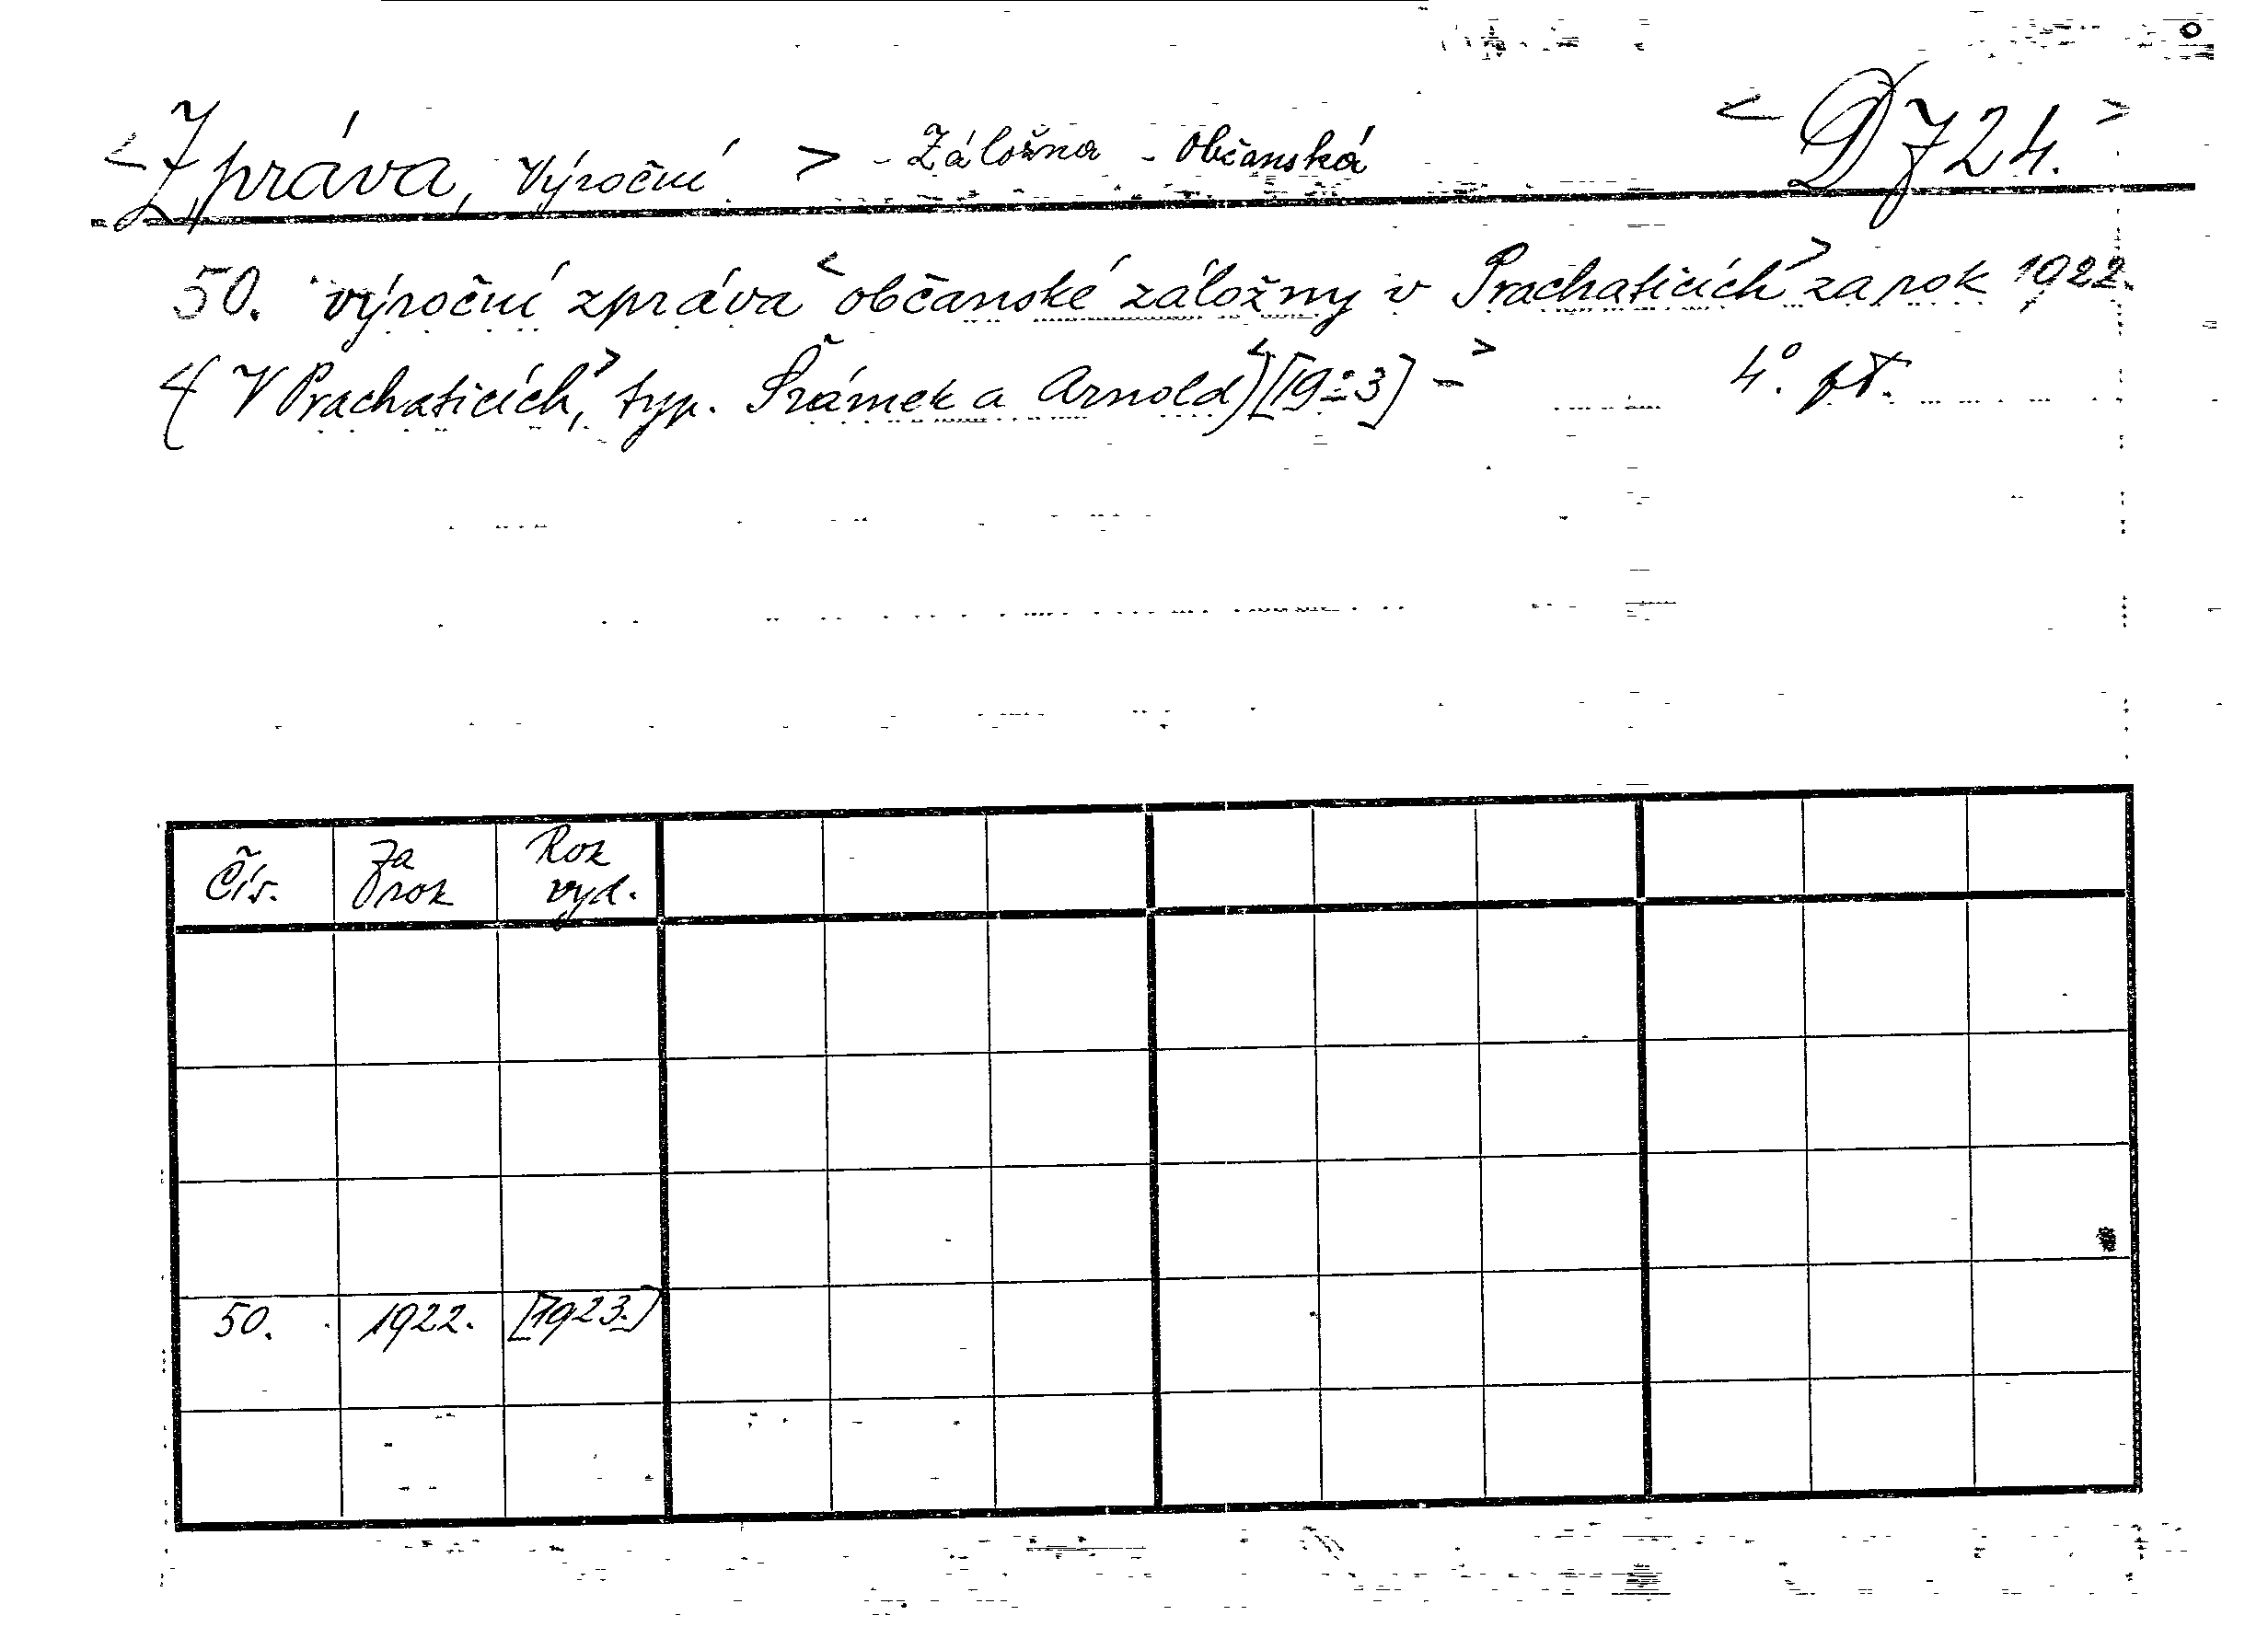 <Zpráva, Výroční > - Záložna - Občanská <D724.>
50. výroční zpráva <občanské záložny v Prachaticích> za rok 1922.
(V Prachaticích, typ. Šrámek a Arnold) [19 3] - 4°. př.
Čís. Za rok Rok vyd.
50. 1922. [1923.]